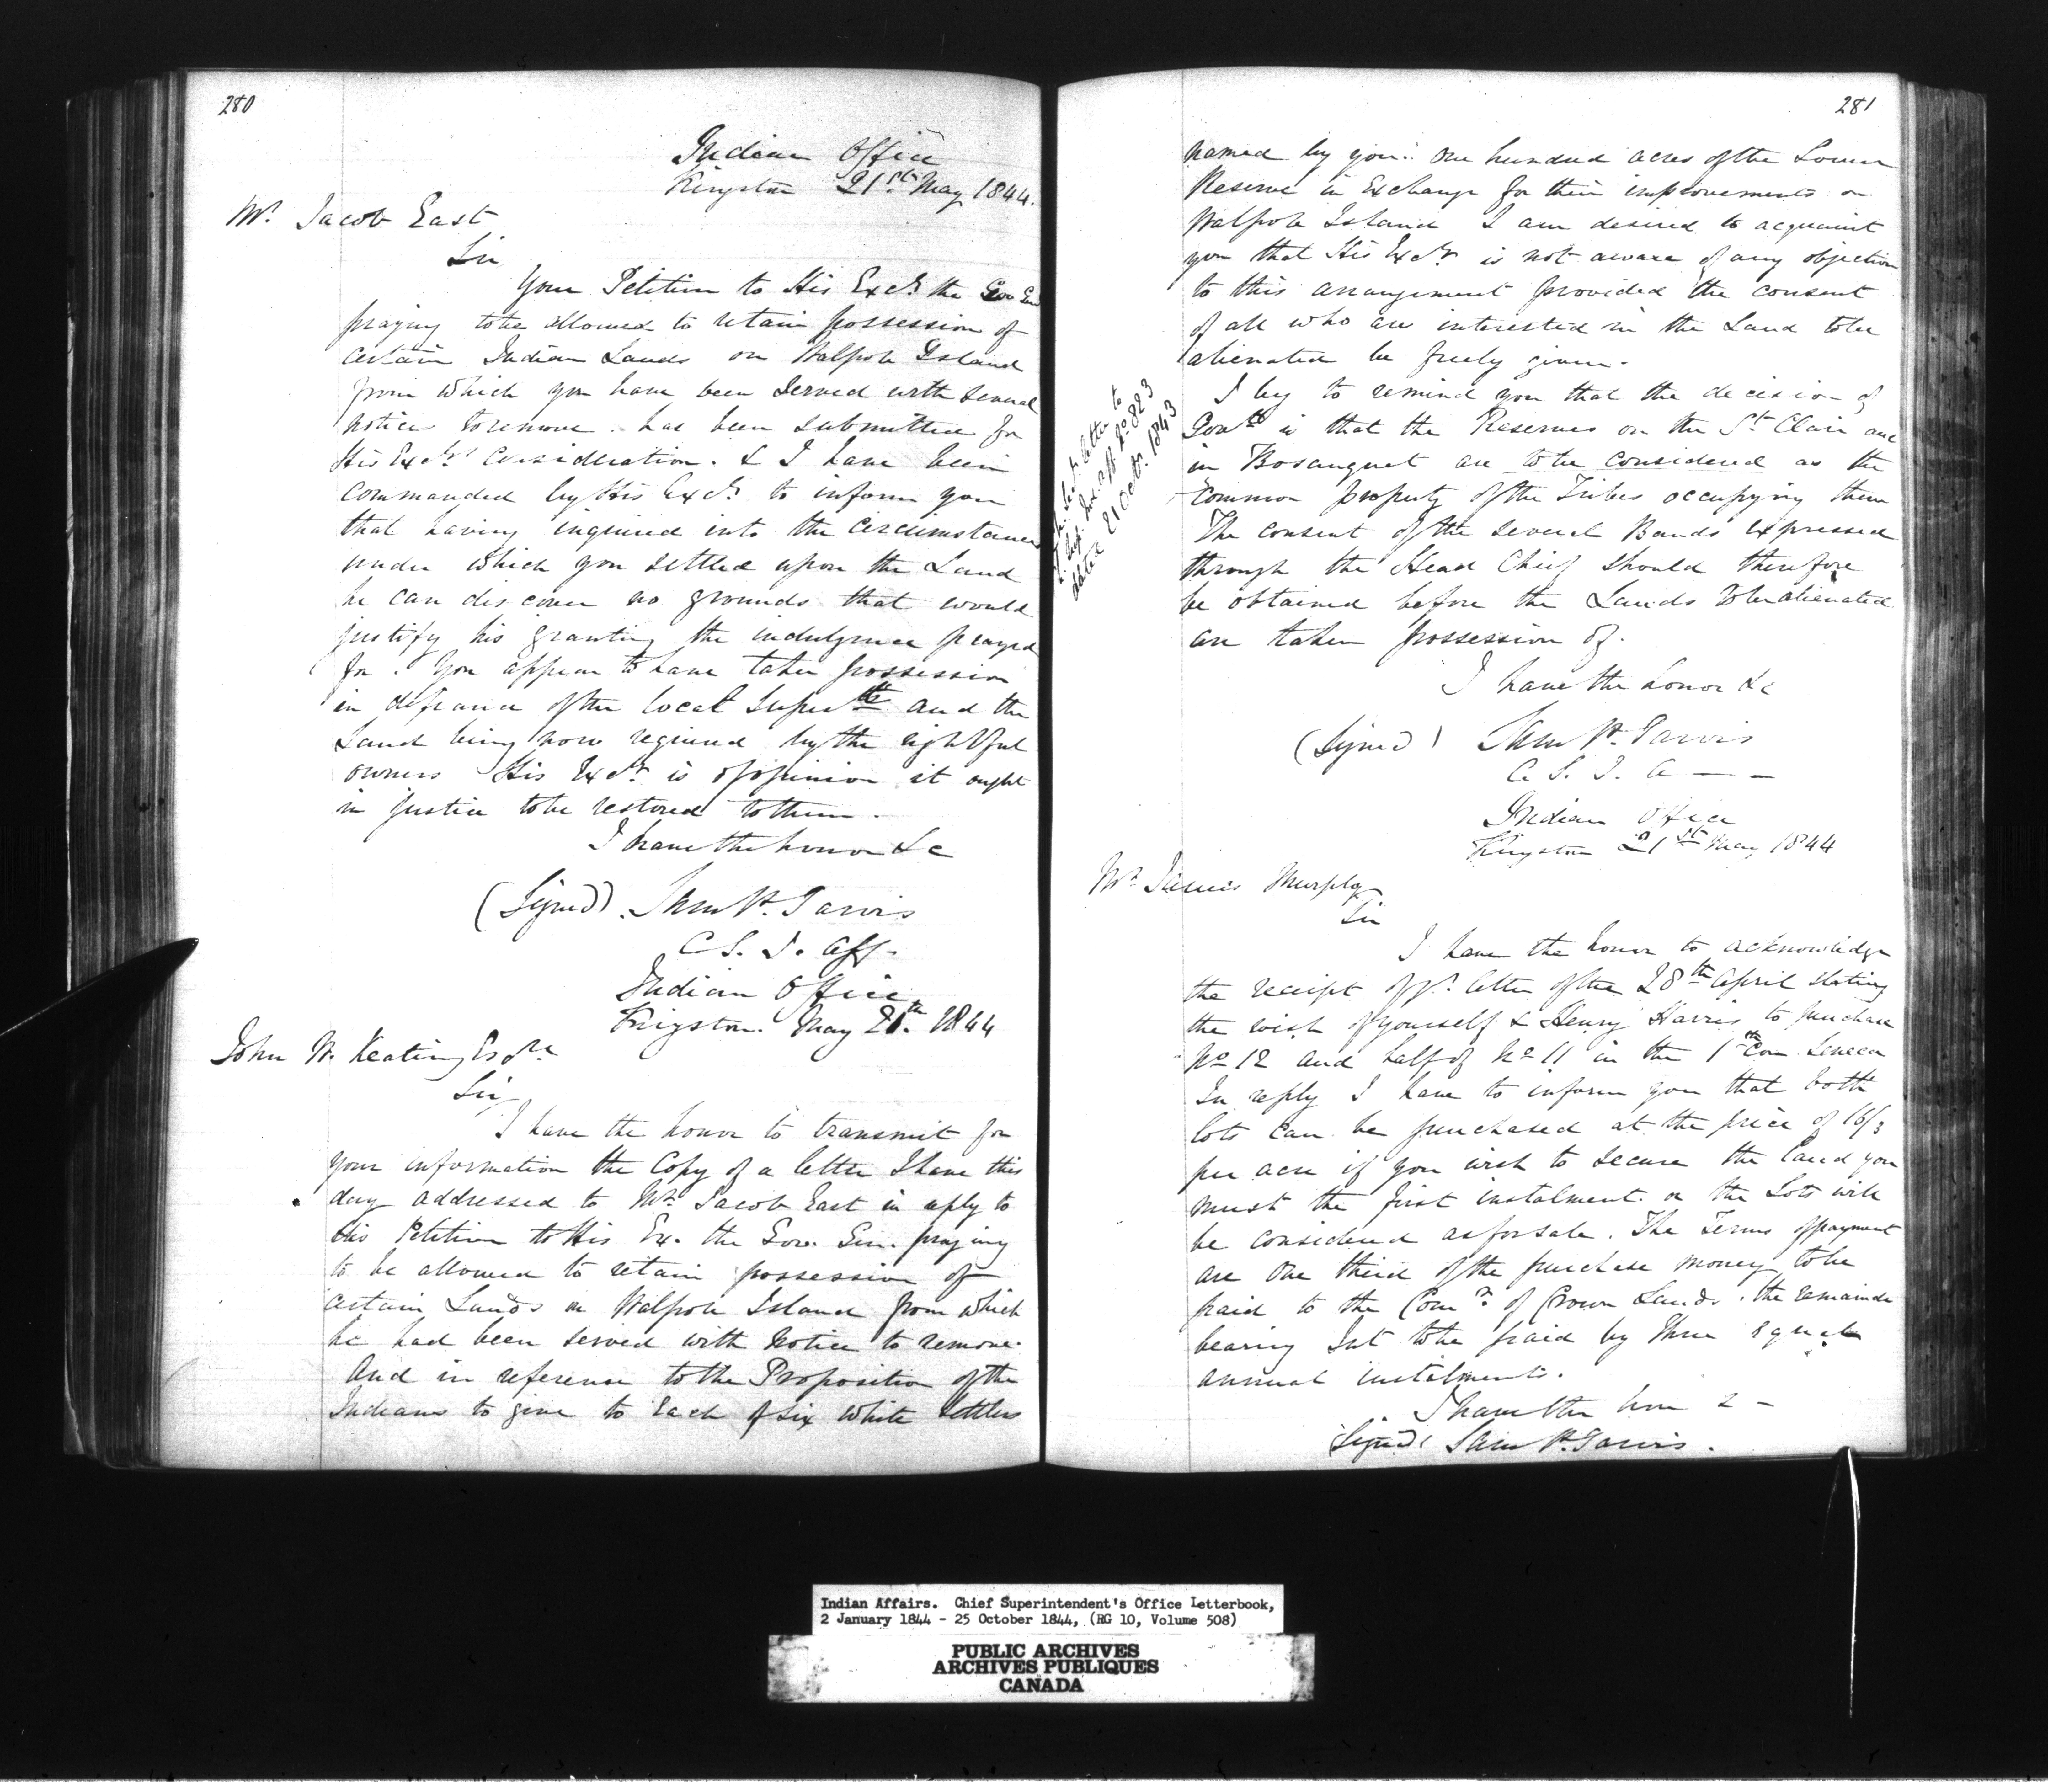 280
Indian Office
Kingston 21st May 1844.
Mr. Jacob East
Sir
Your Petition to His Excy. the Gov Genl
praying to be allowed to retain possession of
certain Indian Lands on Walpole Island
from which you have been served with several
notices to remove. has been submitted for
His Excys. consideration. & I have been
commanded by His Excy. to inform you
that having inquired into the circumstances
under which you settled upon the Land
he can discover no grounds that would
justify his granting the indulgence prayed
for. You appear to have taken possession
in defiance of the local Superte and the
Land being now required by the rightful
owners His Excy. is of opinion it ought
in justice to be restored to them.
I have the honor &c
(Signed). Saml P. Jarvis
C S. I. Aff.
Indian Office
Kingston. May 21th. 1844
John W. Keating Esqre
Sir
I have the honor to transmit for
your information the Copy of a letter I have this
day addressed to Mr. Jacob East in reply to
his Petition to His Ex. the Gov. Gen. praying
to be allowed to retain possession of
certain Lands on Walpole Island from which
he had been served with Notice to remove.
And in reference to the Proposition of the
Indians to give to Each of Six White Settlers
281
named by you. One hundred acres of the Lower
Reserve in Exchange for their improvements on
Walpole Island I am desired to acquaint
you that His Excy. is not aware of any objection
to this arrangement provided the consent
of all who are interested in the Land to be
alienated be freely given.
I beg to remind you that the decision of
Govt is that the Reserves on the St. Clair and
in Bosanquet are to be considered as the
common property of the Tribes occupying them
The consent of the several Bands expressed
through the Head Chief should therefore
be obtained before the Lands to be alienated
are taken possession of.
Letter to
No 823
dated 21 Octr. 1843
I have the honor &c
(Signed) Saml P. Jarvis
C. S. I. A — —
Indian Office
Kingston 21st May 1844
Mr. James Murphy
Sir
I have the honor to acknowledge
the receipt of yr. letter of the 28th April stating
the wish of yourself & Henry Harris to purchase
No 12 and half of No 11 in the 1st Con Seneca
In reply I have to inform you that both
lots can be purchased at the price of 16/3
per acre if you wish to secure the Land you
must the first instalment. or the Lots will
be considered as for sale. The Terms of payment
are One third of the purchase money to be
paid to the Comr. of Crown Lands. the remainder
bearing Int to be paid by three equal
annual instalments.
I have the hon &—
Signed Saml P. Jarvis.
Indian Affairs. Chief Superintendent's Office Letterbook,
2 January 1844 - 25 October 1844, (RG 10, Volume 508)
PUBLIC ARCHIVES
ARCHIVES PUBLIQUES
CANADA